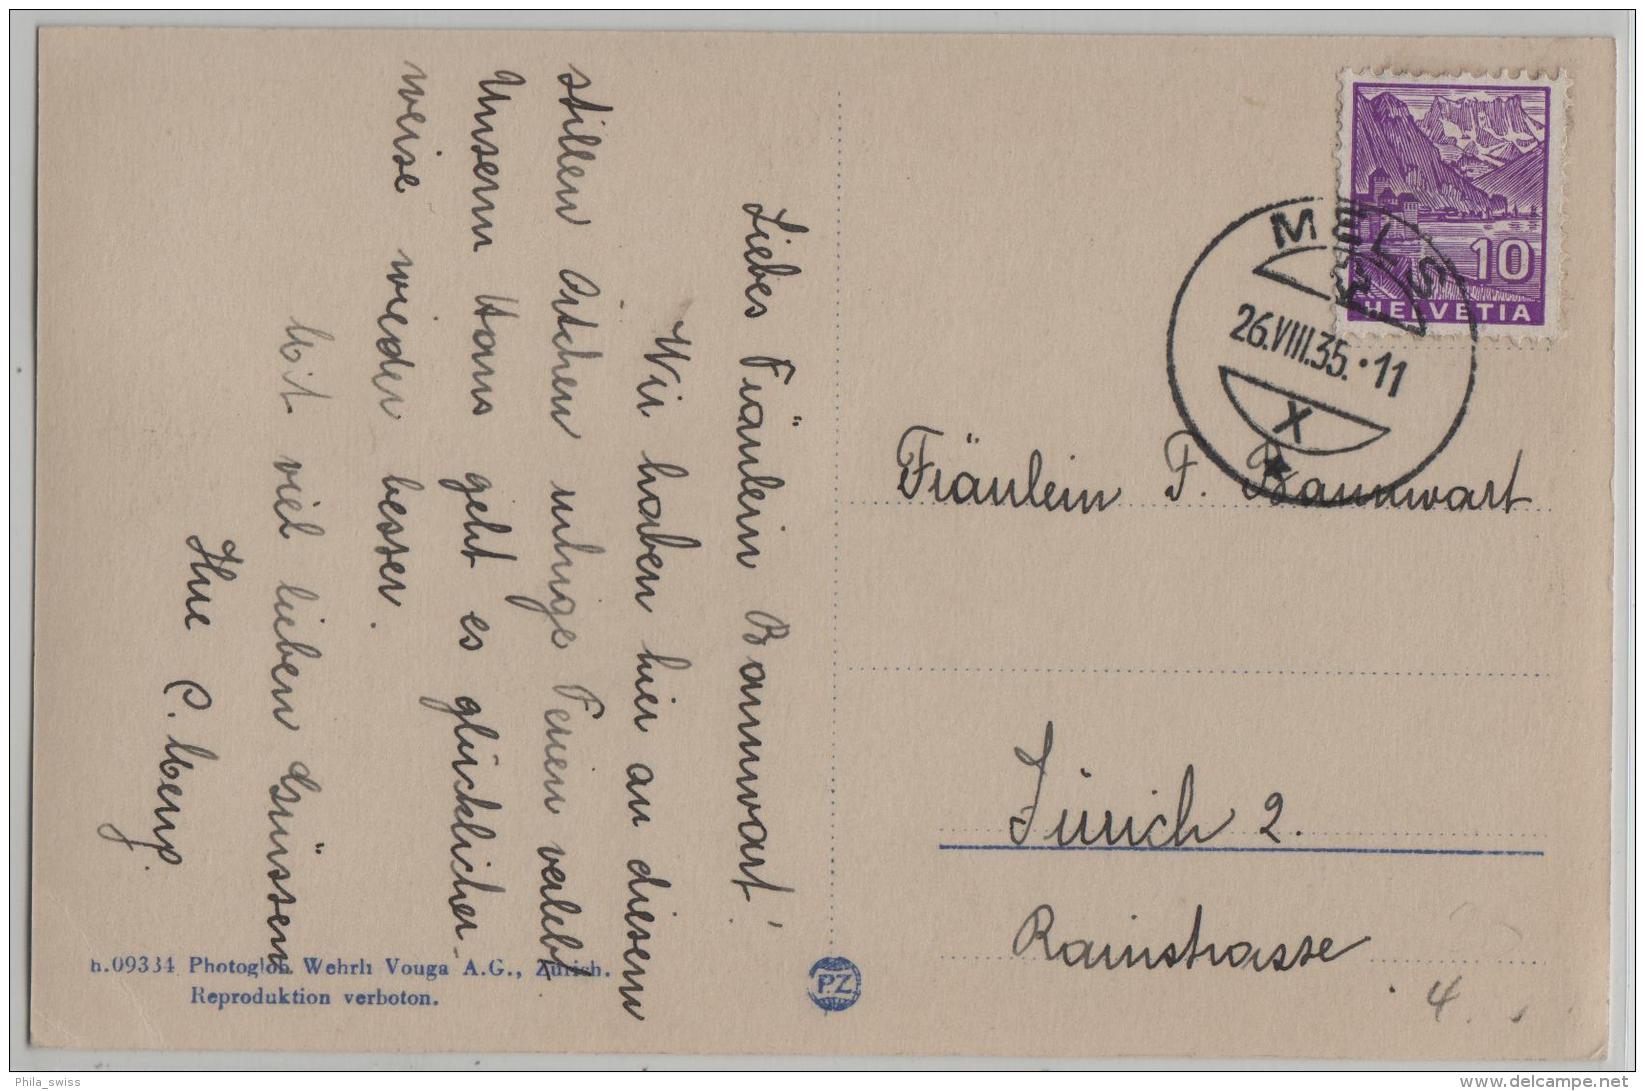 Liebes Fräulein Bannwart!
Wir haben hier an diesem
stillen Örtchen ruhige Ferien verlebt
Unserm Hans geht es glücklicher-
weise wieder besser.
Mit viel lieben Grüssen
Ihre C.
h.09334 Photoglob Wehrli Vouga A.G., Zürich.
Reproduktion verboton.
P.Z
HELVETIA
10
MELS
26.VIII.35.·11
X
Fräulein F. Bannwart
Zürich 2.
Rainstrasse
4.
Phila_swiss
delcampe.net